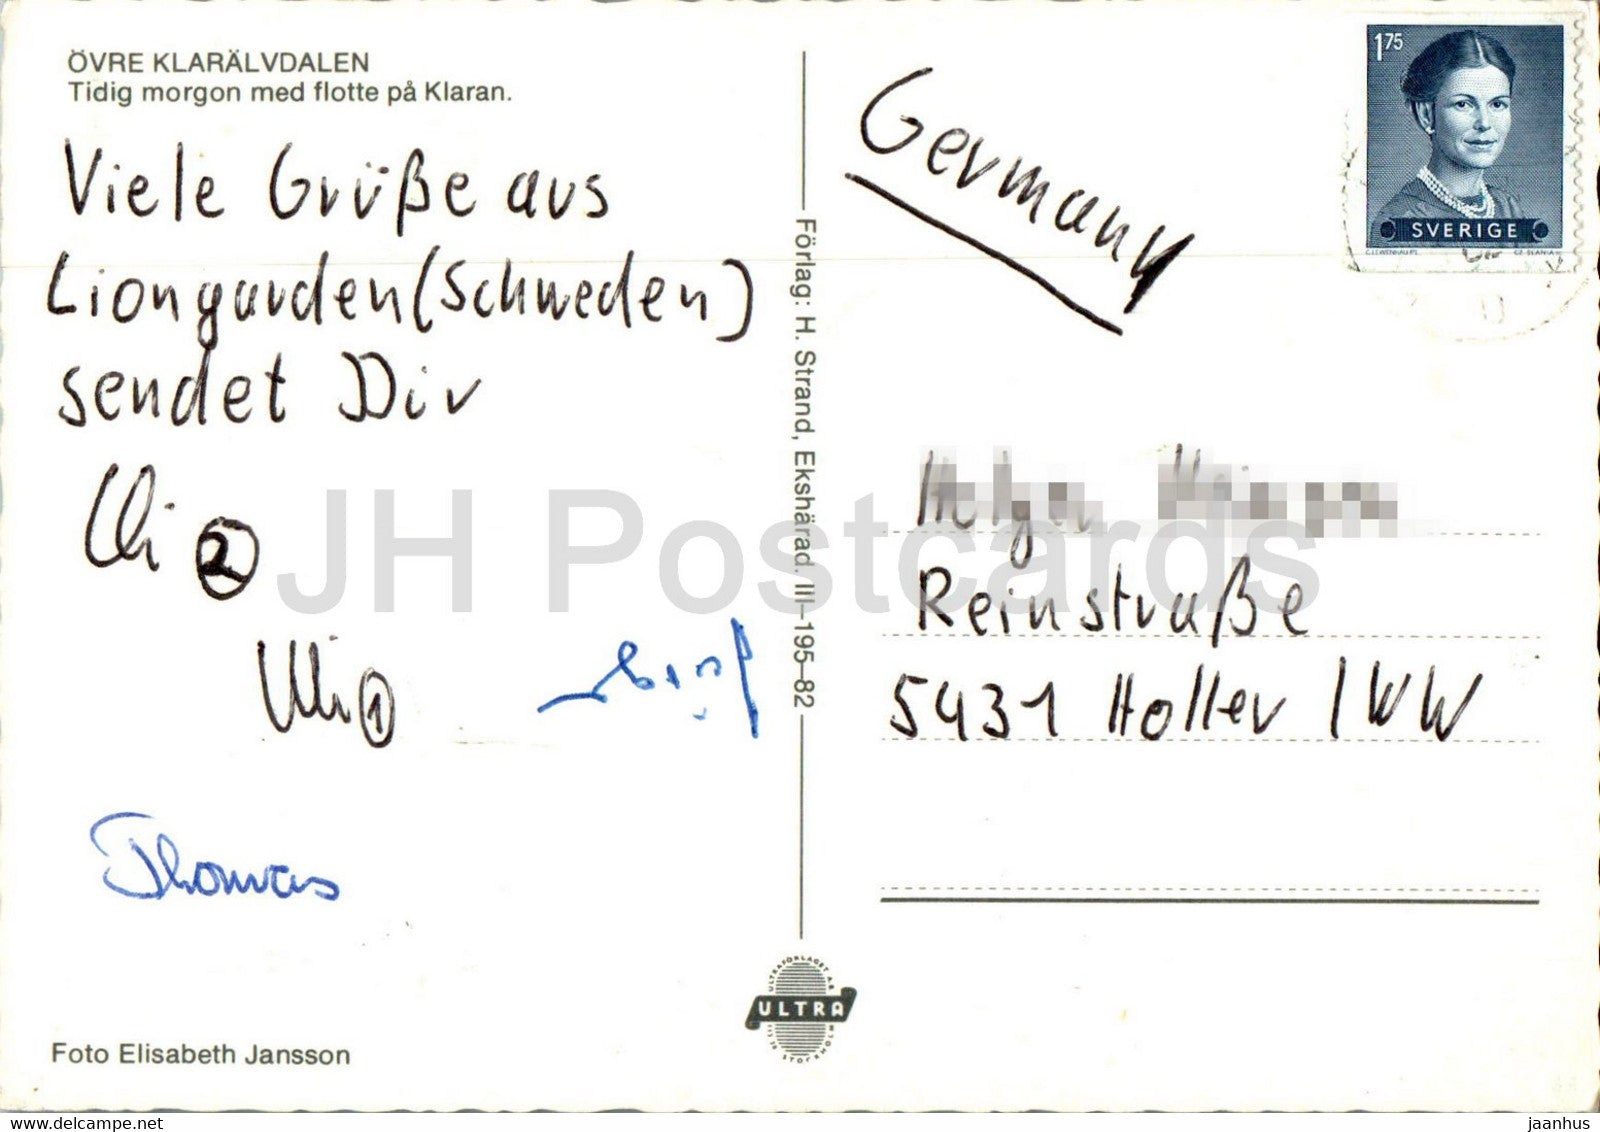 ÖVRE KLARÄLVDALEN
Tidig morgon med flotte på Klaran.
Viele Grüße aus
Liongarden (Schweden)
sendet Dir
Uli 2
Uli 1
Thomas
Foto Elisabeth Jansson
Förlag: H. Strand, Ekshärad. III–195–82
ULTRA
Germany
175
SVERIGE
Reinstraße
5431 Holler / WW
JH Postcards
jaanhus